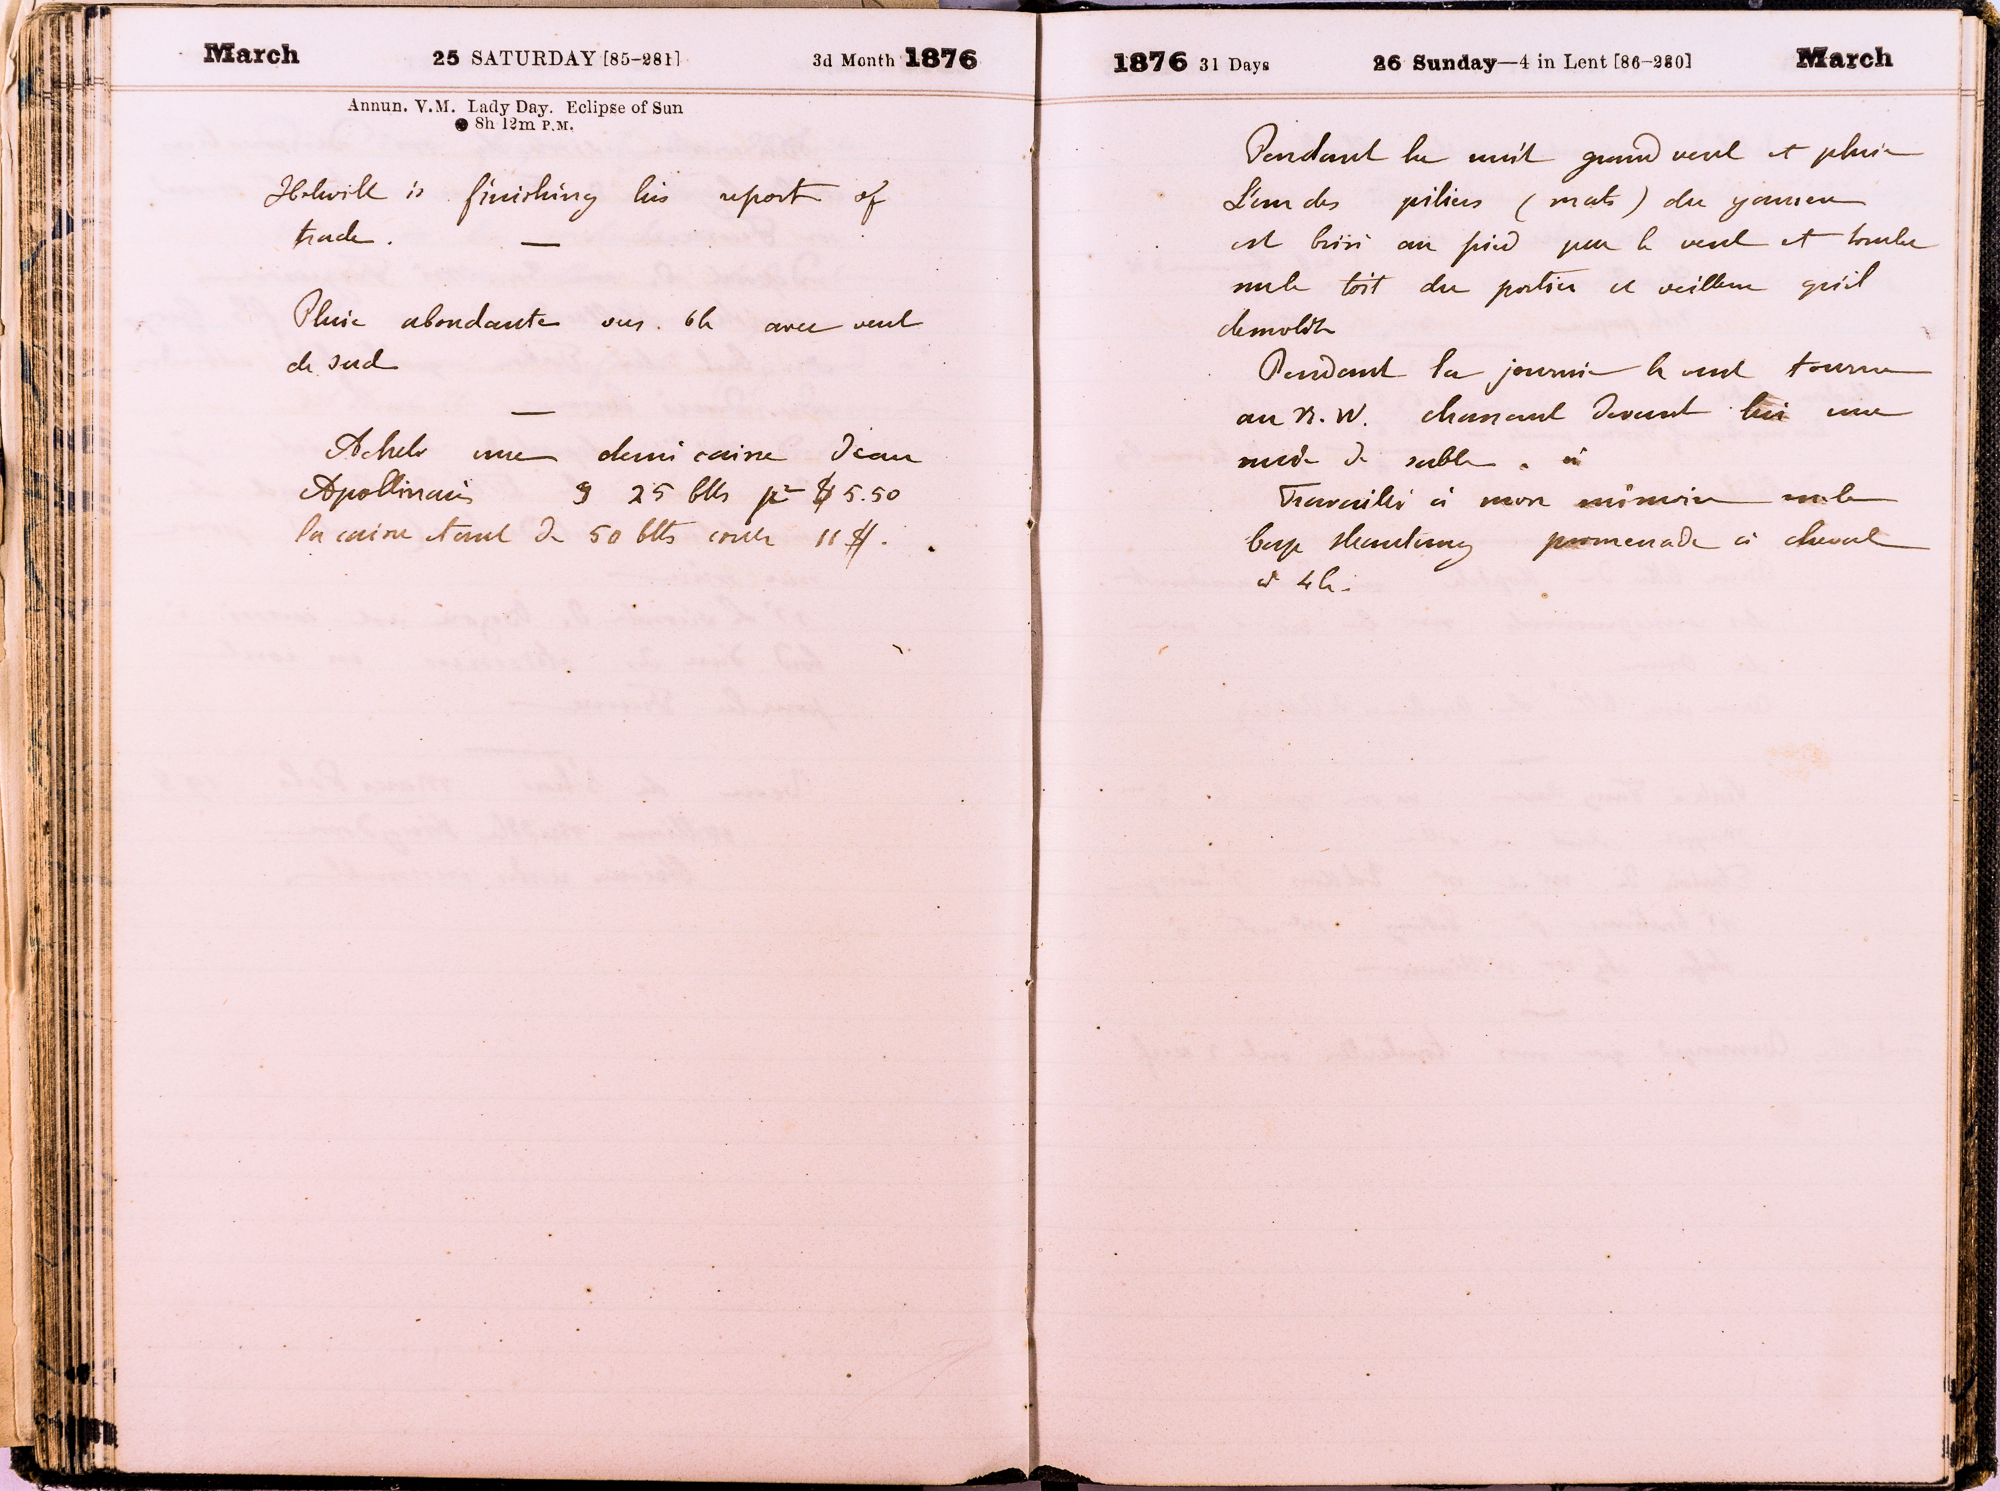 March 25 SATURDAY [85-281] 3d Month 1876
Annun. V.M. Lady Day. Eclipse of Sun
● 8h 12m P.M.
Holwill is finishing his report of
trade. —
Pluie abondante vers. 6h avec vent
de sud
—
Achete une demi caisse d'eau
Apollinaris 25 btls pr $ 5.50
la caisse etant de 50 btls coute 11 $.
1876 31 Days 26 Sunday—4 in Lent [86-280] March
Pendant la nuit grand vent et pluie
L'un des piliers (mats) du yamen
est brisé au pied par le vent et tombe
sur le toit du portier et veilleur qu'il
demolit
Pendant la journée le vent tourne
au N.W. chassant devant lui une
nuée de sable . à
Travaillé à mon mémoire sur le
barge shantung promenade à cheval
à 4h.